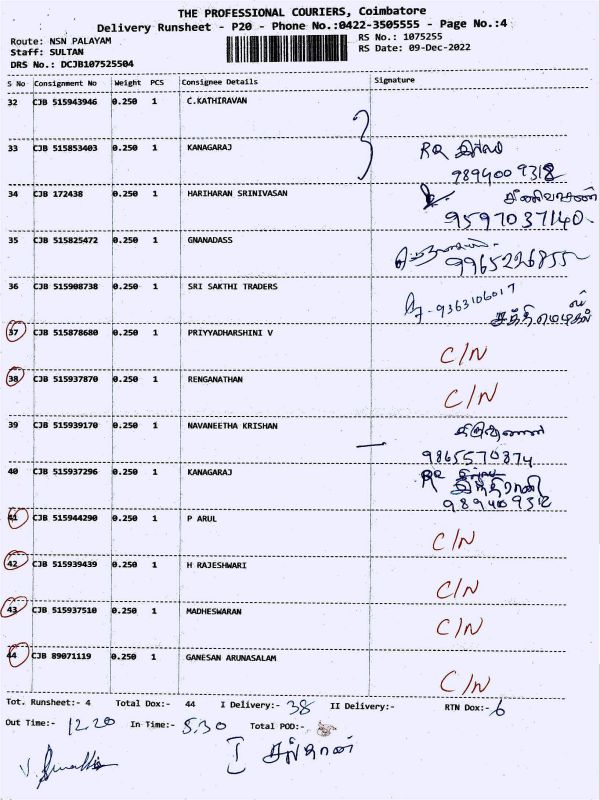 THE PROFESSIONAL COURIERS, Coimbatore
Delivery Runsheet - P20 - Phone No.:0422-3505555 - Page No.:4
Route: NSN PALAYAM RS No.: 1075255
Staff: SULTAN RS Date: 09-Dec-2022
DRS No.: DCJB107525504
S No Consignment No Weight PCS Consignee Details Signature
32 CJB 515943946 0.250 1 C.KATHIRAVAN
33 CJB 515853403 0.250 1 KANAGARAJ RR
9894009312
34 CJB 172438 0.250 1 HARIHARAN SRINIVASAN சீனிவாசன்
9597037140
35 CJB 515825472 0.250 1 GNANADASS
9965226855
36 CJB 515908738 0.250 1 SRI SAKTHI TRADERS 9363106017
37 CJB 515878680 0.250 1 PRIYYADHARSHINI V C/N
38 CJB 515937870 0.250 1 RENGANATHAN C/N
39 CJB 515939170 0.250 1 NAVANEETHA KRISHAN
9865570874
40 CJB 515937296 0.250 1 KANAGARAJ RR இந்திராணி
9894009312
41 CJB 515944290 0.250 1 P ARUL C/N
42 CJB 515939439 0.250 1 H RAJESHWARI C/N
43 CJB 515937510 0.250 1 MADHESWARAN C/N
44 CJB 89071119 0.250 1 GANESAN ARUNASALAM C/N
Tot. Runsheet:- 4 Total Dox:- 44 I Delivery:- 38 II Delivery:- RTN Dox:- 6
Out Time:- 12.20 In Time:- 5.30 Total POD:-
I சுல்தான்